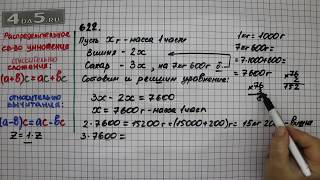 4ДА5.RU
Распределительное
св-во умножения
относительно
сложения:
(a+b)c=ac+bc
относительно
вычитания:
(a-b)c=ac-bc
z=1·z
622.
Пусть x г - масса 1 части
Вишня - 2x
Сахар - 3x, на 7кг 600г б.
Составим и решим уравнение:
3x - 2x = 7600
x = 7600 г - масса 1 части
2·7600=15200г=(15000+200)г=15кг 200г - вишня
3·7600=
1кг=1000г
7кг 600г=
=7·1000+600=
=7600г
x 76
2
152
x 76
3